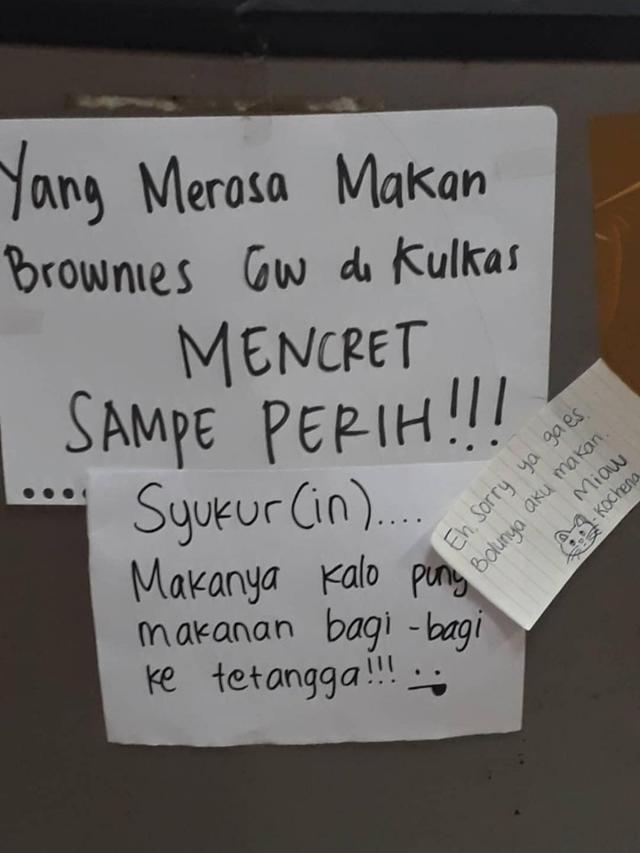 Yang Merasa Makan
Brownies Gw di Kulkas
MENCRET
SAMPE PERIH!!!
Syukur(in)....
Makanya kalo puny
makanan bagi-bagi
ke tetangga!!!
Eh sorry ya gaes.
Bolunya aku makan.
Miaw
-Kochena